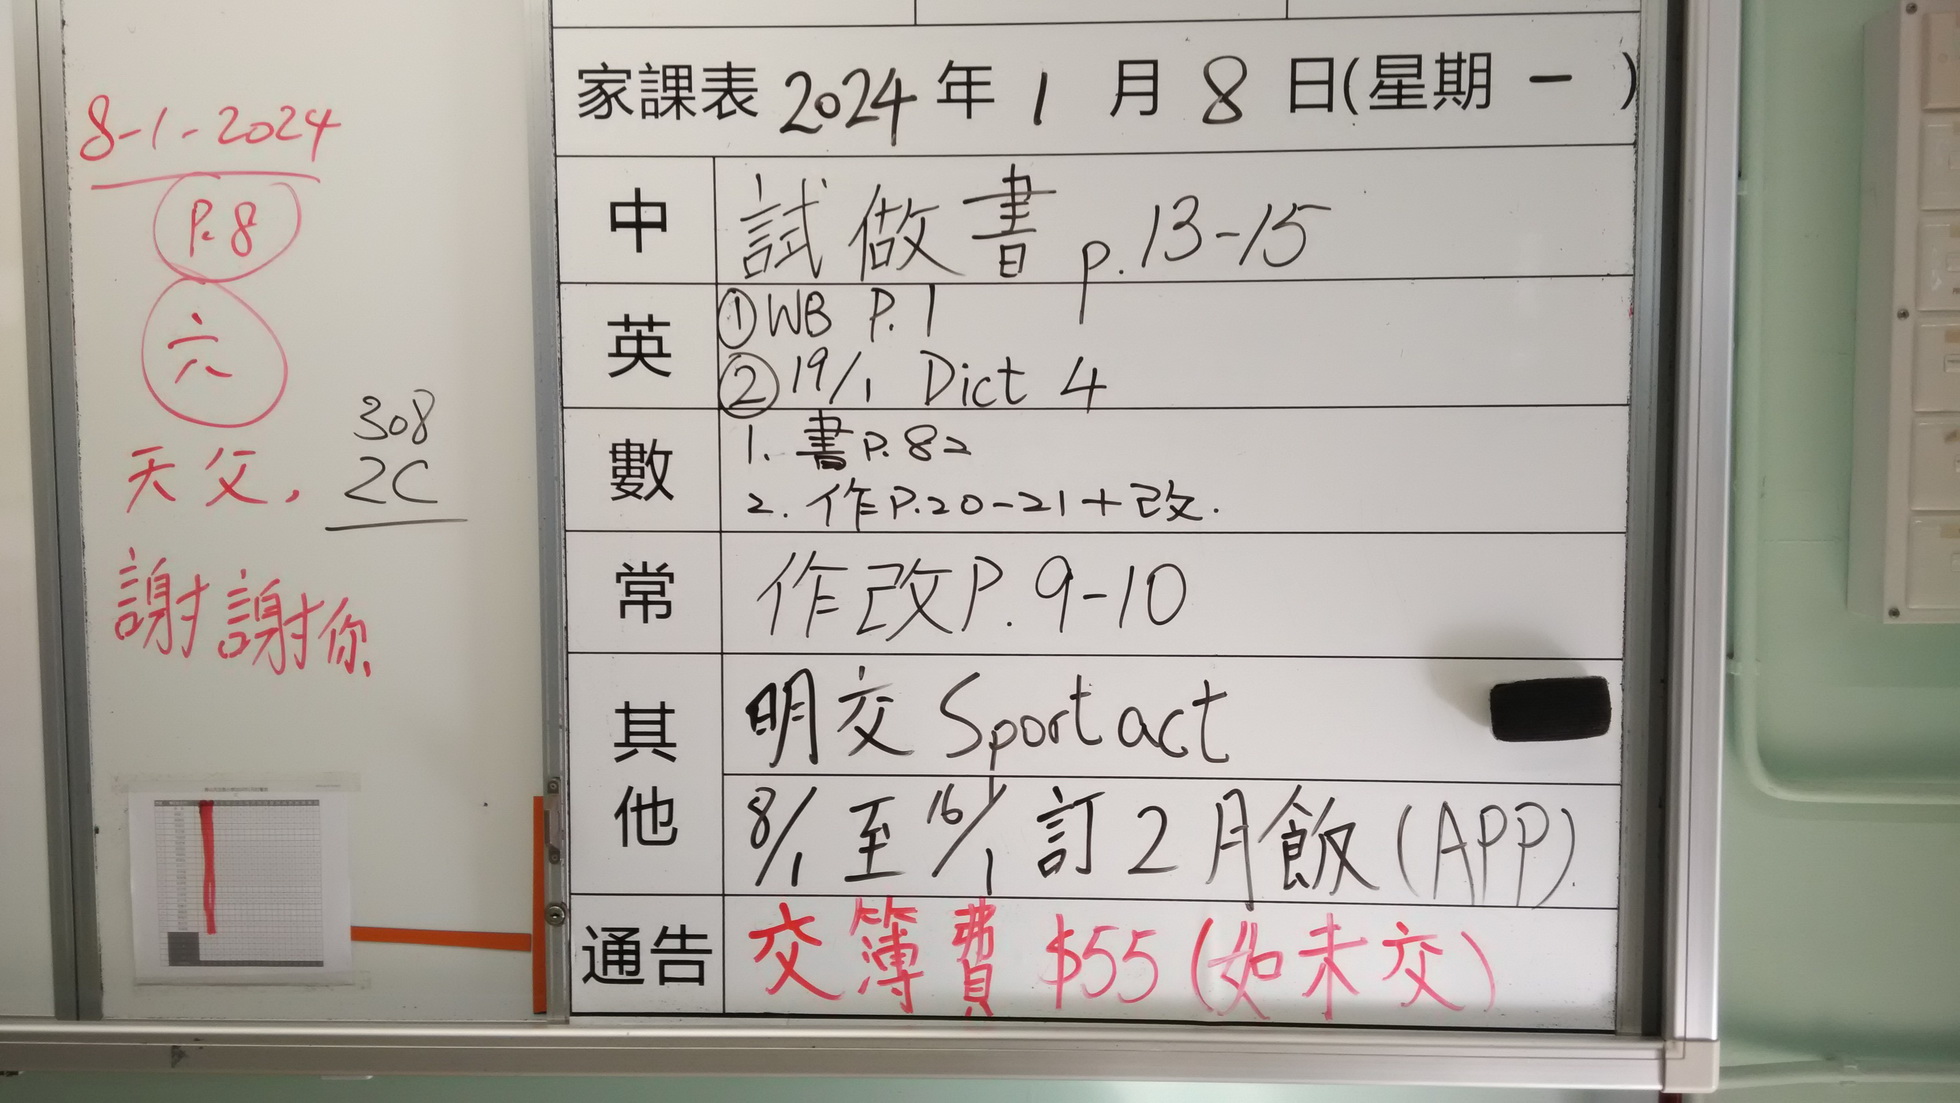 8-1-2024
P.8
六
天父,
謝謝你
308
2C
家課表 2024 年 1 月 8 日(星期 一 )
中 試做書 p.13-15
英 ①WB P.1
②19/1 Dict 4
數 1. 書P.82
2. 作P.20-21+改.
常 作改P.9-10
其他 明交 Sport act
8/1 至 16/1 訂2月飯(APP)
通告 交簿費 $55 (如未交)